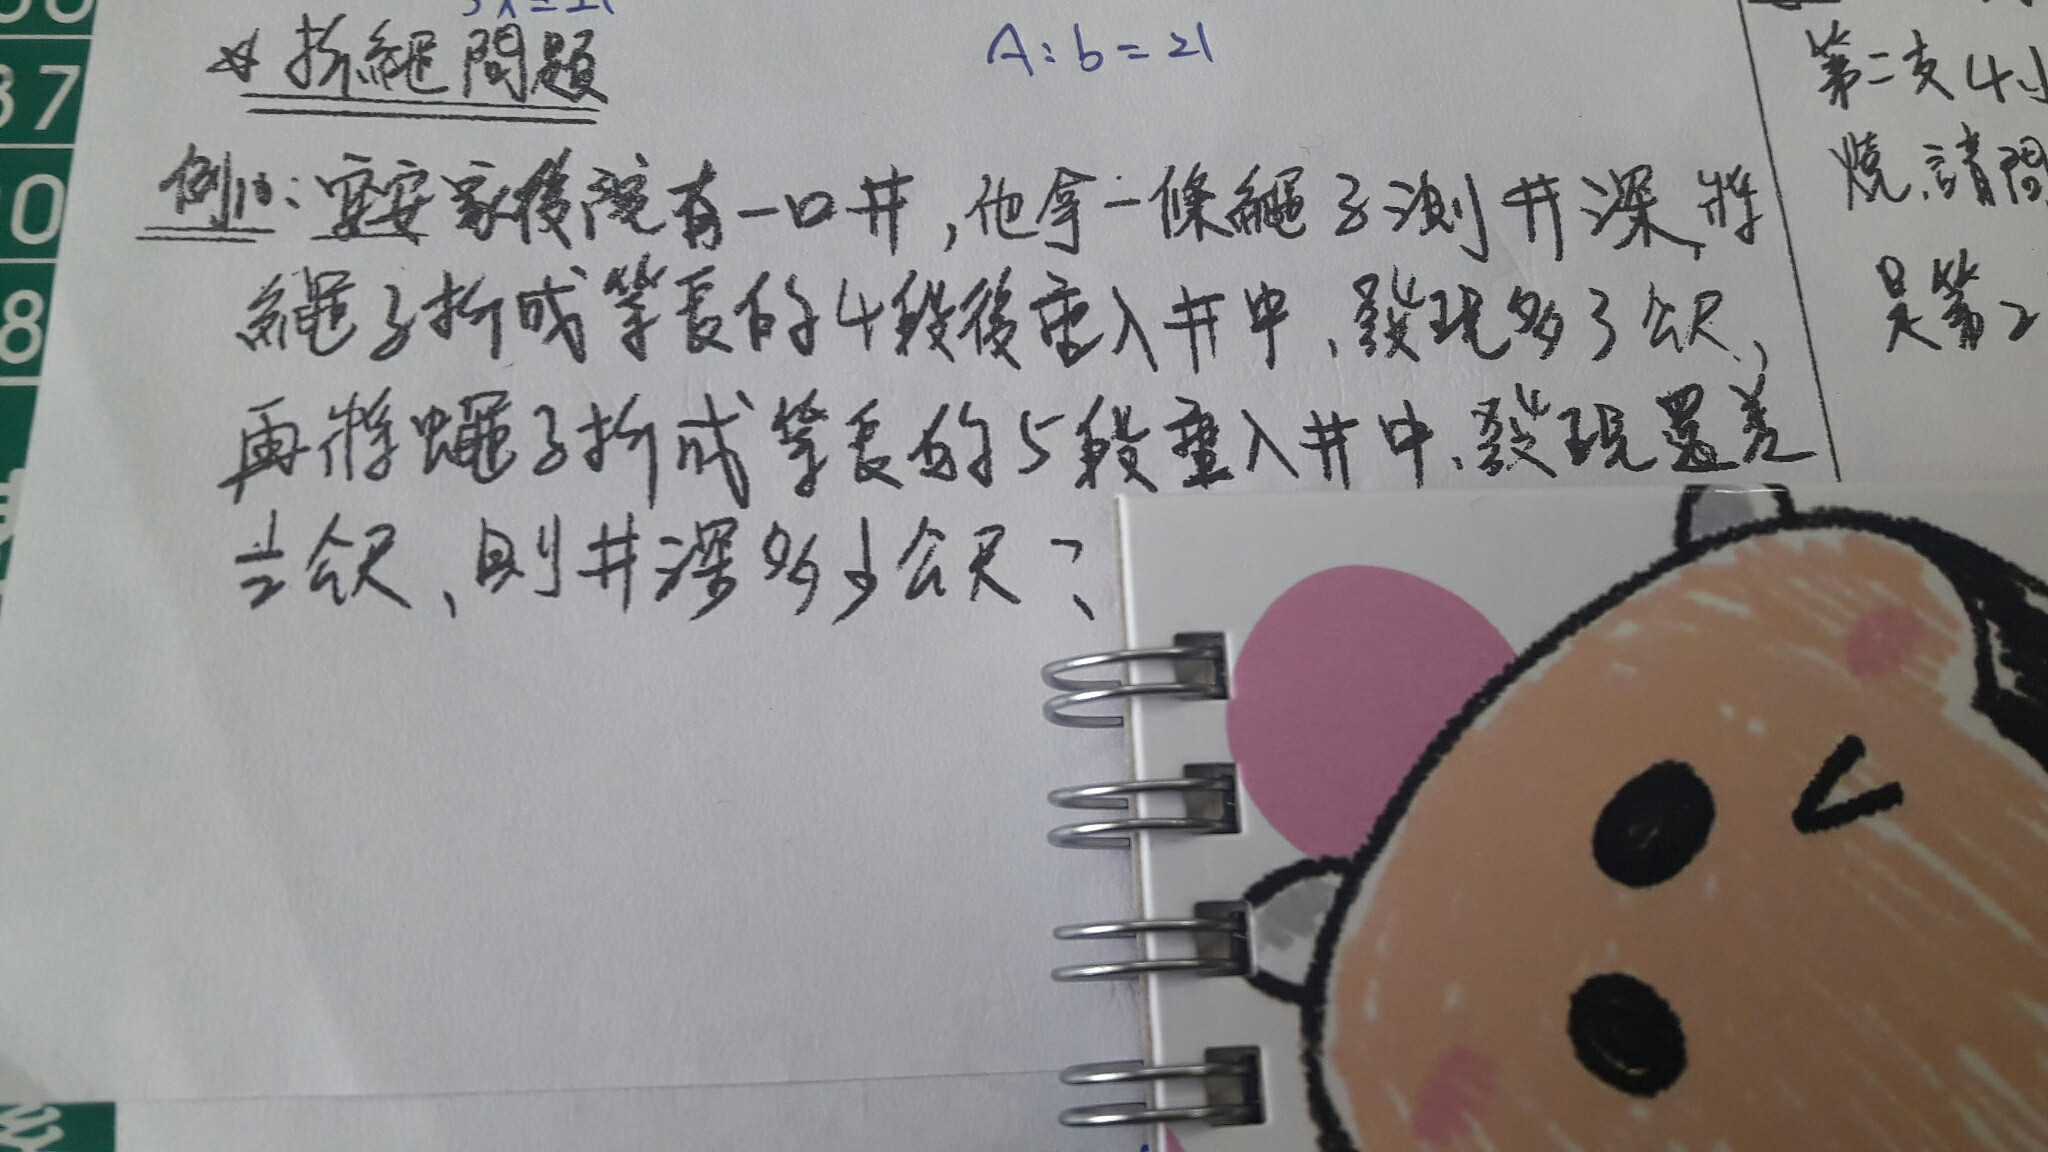 ☆折繩問題
A:b=21
例10:安安家後院有一口井,他拿一條繩子測井深,將
繩子折成等長的4段後垂入井中,發現多3公尺,
再將繩子折成等長的5段垂入井中,發現還差
1/2公尺,則井深多少公尺?
第二支4小
燒,請問
是第2
37
0
8